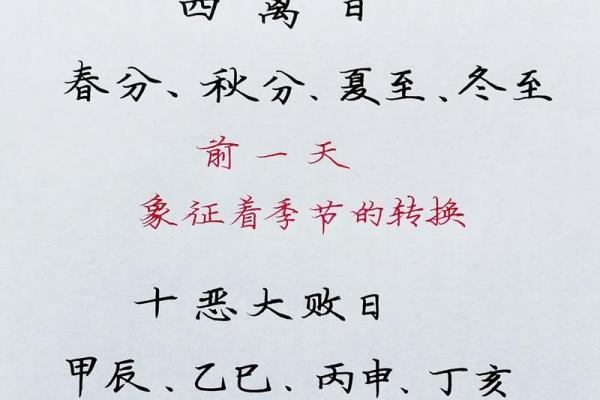 四离日
春分、秋分、夏至、冬至
前一天
象征着季节的转换
十恶大败日
甲辰、乙巳、丙申、丁亥